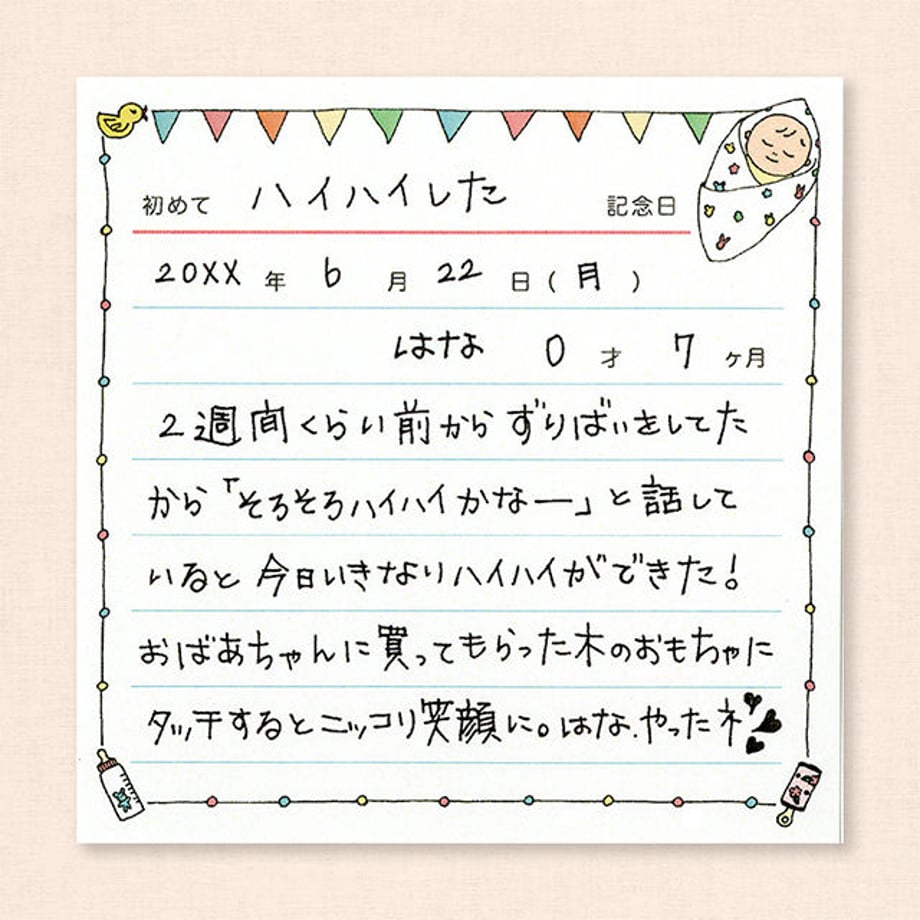 初めて ハイハイした 記念日
20XX 年 6 月 22 日 ( 月 )
はな 0 才 7 ヶ月
2週間くらい前からずりばいをしてた
から「そろそろハイハイかなー」と話して
いると 今日いきなりハイハイができた!
おばあちゃんに買ってもらった木のおもちゃに
タッチするとニッコリ笑顔に。はな、やったネ